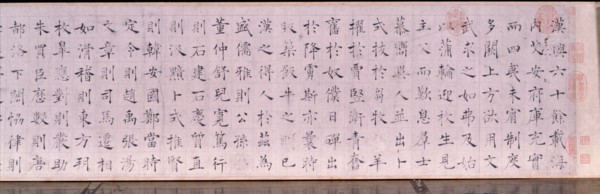 漢興六十餘載海
內乂安府庫充實
而四夷未賓制度
多闕上方欲用文
武求之如弗及始
以蒲輪迎枚生見
主父而歎息群士
慕嚮異人並出卜
式拔於芻牧羊
擢於賈豎衛青奮
奮於奴僕日磾出
於降虜斯亦曩時
版築飯牛之朋已
漢之得人於茲為
盛儒雅則公孫
董仲舒兒寬篤行
則石建石慶質直
則汲黯卜式推賢
則韓安國鄭當時
定令則趙禹張湯
文章則司馬遷相
如滑稽則東方朔
枚皋應對則嚴助
朱買臣歷數則唐
都洛下閎協律則